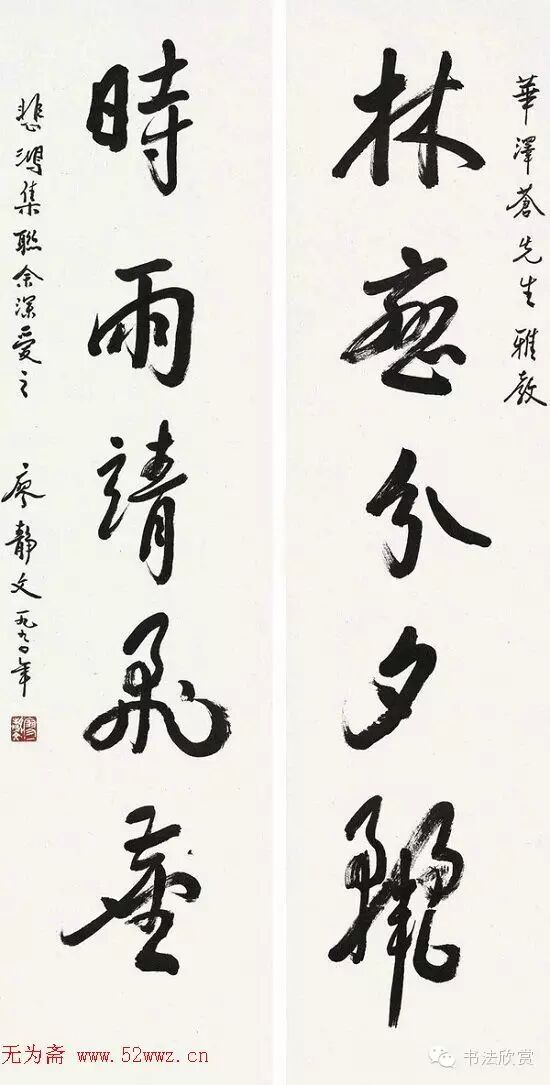 華澤蒼先生雅教
林分夕
時雨靖飛塵
悲鴻集聯余深愛之 廖靜文一九九〇年
无为斋 www.52wwz.cn
书法欣赏